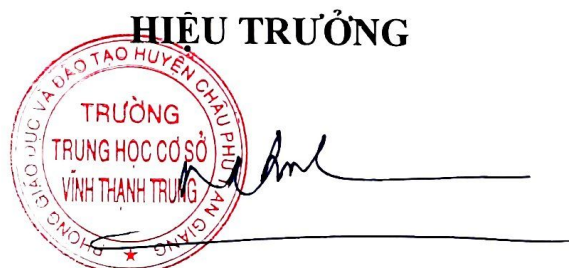 HIỆU TRƯỞNG
PHÒNG GIÁO DỤC VÀ ĐÀO TẠO HUYỆN CHÂU PHÚ
AN GIANG
TRƯỜNG
TRUNG HỌC CƠ SỞ
VĨNH THẠNH TRUNG